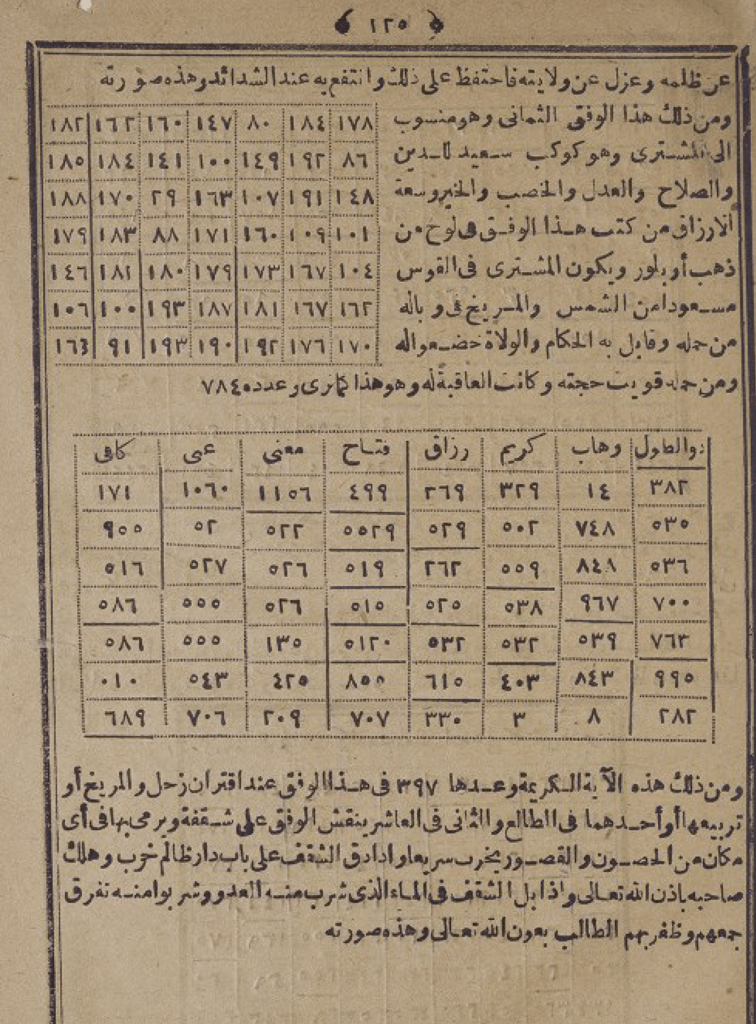 ١٢٥
عن ظلمه وعزل عن ولايته فاحتفظ على ذلك وانتفع به عند الشدائد وهذه صورته
ومن ذلك هذا الوفق الثمانى وهو منسوب
الى المشترى وهو كوكب سعيد للدين
والصلاح والعدل والخصب والخير وسعة
الارزاق من كتب هذا الوفق فى لوح من
ذهب أو بلور ويكون المشترى فى القوس
مسعودا من الشمس والمريخ فى وباله
من حمله وقابل به الحكام والولاة خضعوا له
١٧٨ ١٨٤ ٨٠ ١٤٧ ١٦٠ ١٦٢ ١٨٢
٨٦ ١٩٢ ١٤٩ ١٠٠ ١٤١ ١٨٤ ١٨٥
١٤٨ ١٩١ ١٠٧ ١٦٣ ٢٩ ١٧٠ ١٨٨
١٠١ ١٠٩ ١٦٠ ١٧١ ٨٨ ١٨٣ ١٧٩
١٠٤ ١٦٧ ١٧٣ ١٧٩ ١٨٠ ١٨١ ١٤٦
١٦٢ ١٦٧ ١٨١ ١٨٧ ١٩٣ ١٠٠ ١٠٦
١٧٠ ١٧٦ ١٩٢ ١٩٠ ١٩٣ ٩١ ١٦٣
ومن حمله قويت حجته وكانت العاقبة له وهو هذا كما ترى وعدده ٧٨٤
ذوالطول وهاب كريم رزاق فتاح معنى عى كافى
٣٨٢ ١٤ ٣٢٩ ٢٦٩ ٤٩٩ ١١٥٦ ١٠٦٠ ١٧١
٥٣٥ ٧٤٨ ٥٠٢ ٥٢٩ ٥٥٢٩ ٥٢٢ ٥٢ ٩٥٥
٥٣٦ ٨٤٨ ٥٥٩ ٢٦٢ ٥١٩ ٥٢٦ ٥٢٧ ٥١٦
٧٠٠ ٩٦٧ ٥٣٨ ٥٢٥ ٥١٥ ٥٢٦ ٥٥٥ ٥٨٦
٧٦٣ ٥٣٩ ٥٣٢ ٥٣٢ ٥١٢٠ ١٣٥ ٥٥٥ ٥٨٦
٩٩٥ ٨٤٣ ٤٠٣ ٦١٥ ٨٥٥ ٤٢٥ ٥٤٣ ٠١٠
٢٨٢ ٨ ٣ ٣٣٠ ٧٠٧ ٢٠٩ ٧٠٦ ٦٨٩
ومن ذلك هذه الآية الكريمة وعدها ٣٩٧ فى هذا الوفق عند اقتران زحل والمريخ أو
تربيعها أو أحدهما فى الطالع والثانى فى العاشر ينقش الوفق على شقفة ويرمى بها فى أى
مكان من الحصون والقصور يخرب سريعا واذا دق الشقف على باب دار ظالم خرب وهلك
صاحبه باذن الله تعالى واذا بل الشقف فى الماء الذى شرب منه العدو وشربوا منه تفرق
جمعهم وظفر بهم الطالب بعون الله تعالى وهذه صورته